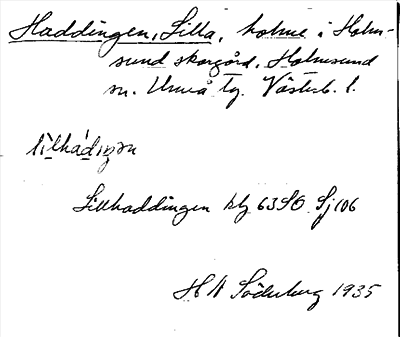 Haddingen, Lilla, holme i Holm-
sund skärgård. Holmsund
sn. Umeå tg. Västerb. l.
Lillhaddingen kbl 63 SO Sj 106
H N Söderberg 1935